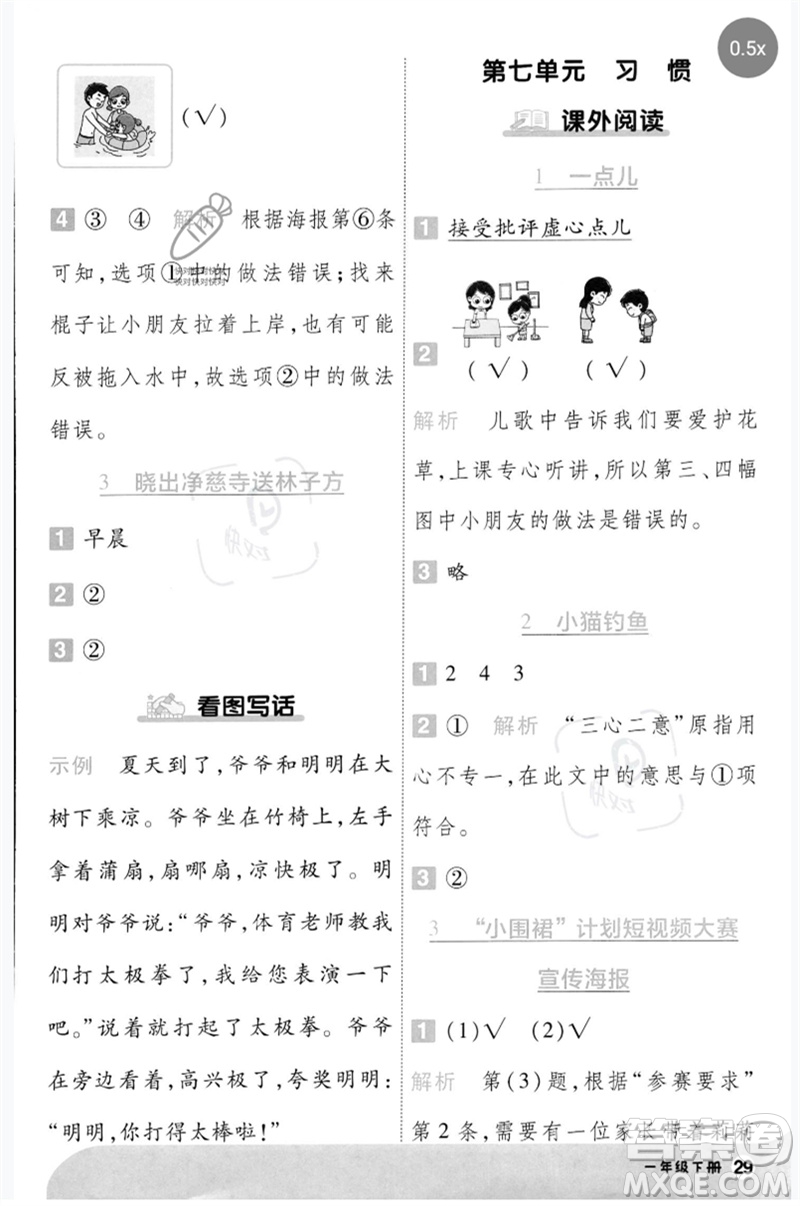 (√)
4 ③ ④ 解析 根据海报第⑥条
可知,选项①中的做法错误;找来
棍子让小朋友拉着上岸,也有可能
反被拖入水中,故选项②中的做法
错误。
3 晓出净慈寺送林子方
1 早晨
2 ②
3 ②
看图写话
示例 夏天到了,爷爷和明明在大
树下乘凉。爷爷坐在竹椅上,左手
拿着蒲扇,扇哪扇,凉快极了。明
明对爷爷说:“爷爷,体育老师教我
们打太极拳了,我给您表演一下
吧。”说着就打起了太极拳。爷爷
在旁边看着,高兴极了,夸奖明明:
“明明,你打得太棒啦!”
0.5x
第七单元 习 惯
课外阅读
1 一点儿
1 接受批评虚心点儿
2 (√) (√)
解析 儿歌中告诉我们要爱护花
草,上课专心听讲,所以第三、四幅
图中小朋友的做法是错误的。
3 略
2 小猫钓鱼
1 2 4 3
2 ① 解析 “三心二意”原指用
心不专一,在此文中的意思与①项
符合。
3 ②
3 “小围裙”计划短视频大赛
宣传海报
1 (1)√ (2)√
解析 第(3)题,根据“参赛要求”
第2条,需要有一位家长带着和蒋
一年级下册 29
答案圈
MXQE.COM